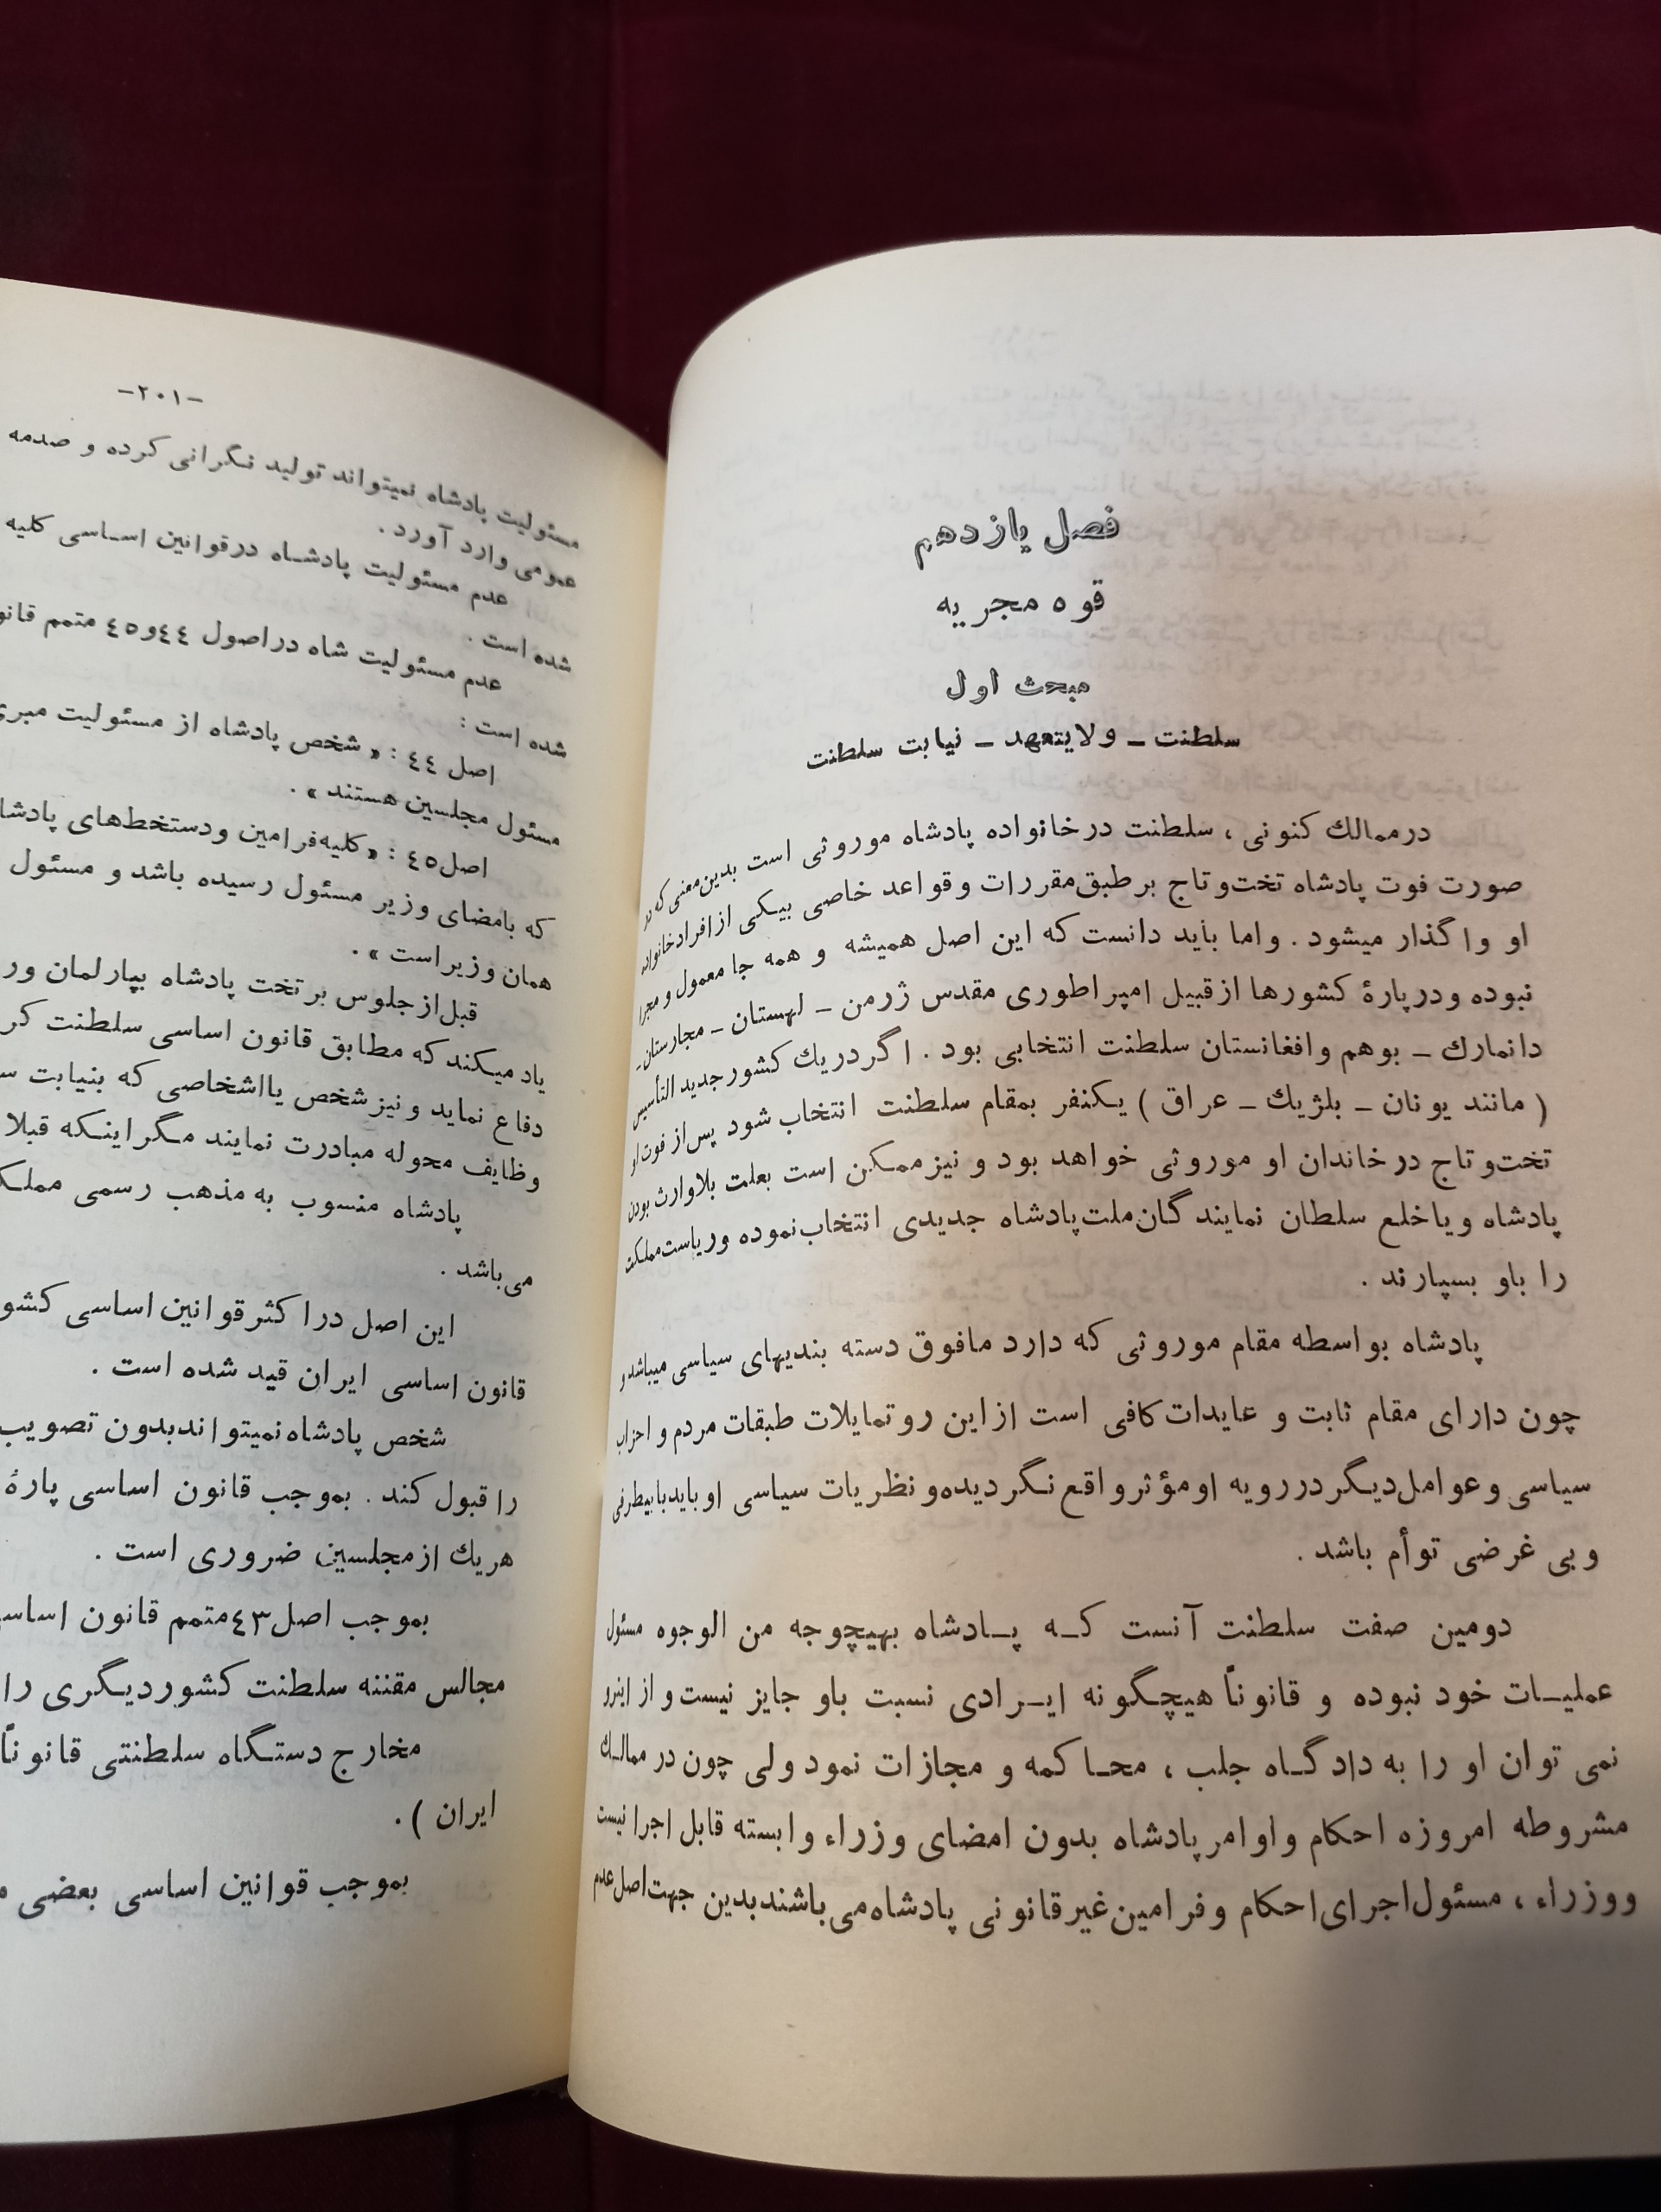 فصل یازدهم
قوه مجریه
مبحث اول
سلطنت ــ ولایتعهد ــ نیابت سلطنت
درممالك کنونی ، سلطنت درخانواده پادشاه موروثی است بدین‌معنی که در
صورت فوت پادشاه تخت‌وتاج برطبق‌مقررات وقواعد خاصی بیکی ازافرادخانواده
او واگذار میشود . واما باید دانست که این اصل همیشه و همه جا معمول و مجرا
نبوده ودرپارهٔ کشورها ازقبیل امپراطوری مقدس ژرمن ــ لهستان ــ مجارستان ــ
دانمارك ــ بوهم وافغانستان سلطنت انتخابی بود . اگردریك کشورجدید التأسیس
( مانند یونان ــ بلژیك ــ عراق ) یکنفر بمقام سلطنت انتخاب شود پس‌از فوت او
تخت‌وتاج درخاندان او موروثی خواهد بود و نیزممکن است بعلت بلاوارث بودن
پادشاه ویاخلع سلطان نمایندگان‌ملت‌پادشاه جدیدی انتخاب‌نموده وریاست‌مملکت
را باو بسپارند .
پادشاه بواسطه مقام موروثی که دارد مافوق دسته بندیهای سیاسی میباشدو
چون دارای مقام ثابت و عایدات‌کافی است ازاین روتمایلات طبقات مردم و احزاب
سیاسی وعوامل‌دیگردررویه اومؤثرواقع‌نگردیده‌ونظریات سیاسی اوبایدبابیطرفی
وبی غرضی توأم باشد .
دومین صفت سلطنت آنست که پادشاه بهیچوجه من الوجوه مسئول
عملیات خود نبوده و قانوناً هیچگونه ایرادی نسبت باو جایز نیست‌و از اینرو
نمی توان او را به دادگاه جلب ، محاکمه و مجازات نمود ولی چون در ممالك
مشروطه امروزه احکام واوامرپادشاه بدون امضای وزراء وابسته قابل اجرا نیست
ووزراء ، مسئول‌اجرای‌احکام وفرامین‌غیرقانونی پادشاه‌می‌باشندبدین جهت‌اصل‌عدم
–۲۰۱–
مسئولیت پادشاه نمیتواند تولید نگرانی کرده و صدمه
عمومی وارد آورد .
عدم مسئولیت پادشاه درقوانین اساسی کلیه
شده است .
عدم مسئولیت شاه دراصول ٤٤و٤٥ متمم
شده است :
اصل ٤٤ : « شخص پادشاه از مسئولیت
مسئول مجلسین هستند » .
اصل٤٥ : «کلیه‌فرامین ودستخط‌های
که بامضای وزیر مسئول رسیده باشد و مسئول
همان وزیراست » .
قبل‌ازجلوس برتخت پادشاه بپارلمان
یاد میکند که مطابق قانون اساسی سلطنت
دفاع نماید ونیزشخص یااشخاصی که بنیابت
وظایف محوله مبادرت نمایند مگراینکه قبلا
پادشاه منسوب به مذهب رسمی
می‌باشد .
این اصل دراکثرقوانین اساسی
قانون اساسی ایران قید شده است .
شخص پادشاه‌نمیتواندبدون تصویب
را قبول کند . بموجب قانون اساسی پارهٔ
هریك ازمجلسین ضروری است .
بموجب اصل٤٣متمم قانون
مجالس مقننه سلطنت کشوردیگری را
مخارج دستگاه سلطنتی قانوناً
ایران ) .
بموجب قوانین اساسی بعضی